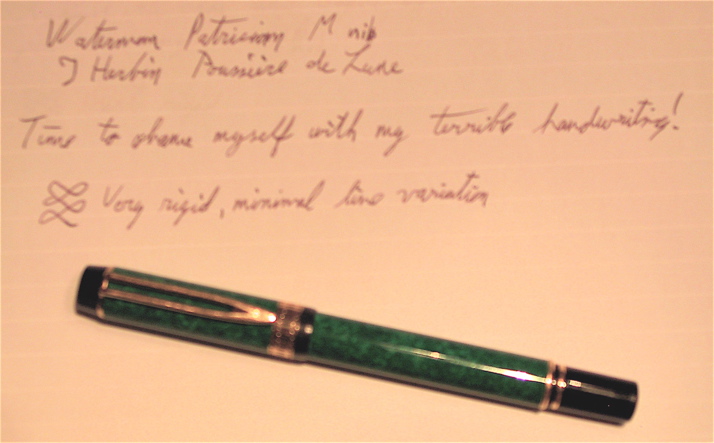 Waterman Patrician M nib
J Herbin Poussière de Lune
Time to shame myself with my terrible handwriting!
Very rigid, minimal line variation